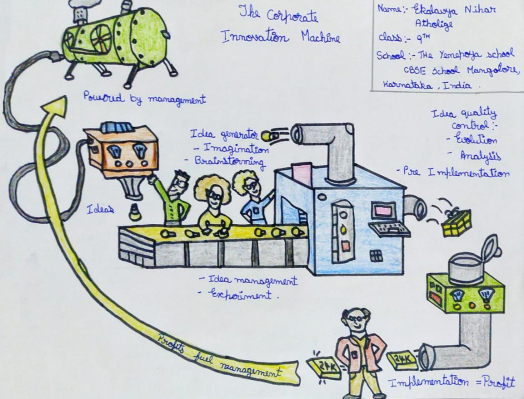 The Corporate
Innovation Machine
Name:- Ekalavya Nihar
Atholige
Class:- 9TH
School:- The Yenepoya school
CBSE School Mangalore,
Karnataka, India.
Powered by management
Idea generator
- Imagination
- Brainstorming
Idea quality
control:-
- Evolution
- Analysis
- Pre Implementation
Ideas
- Idea management
- Experiment.
Profits fuel management
24K
24K
Implementation = Profit